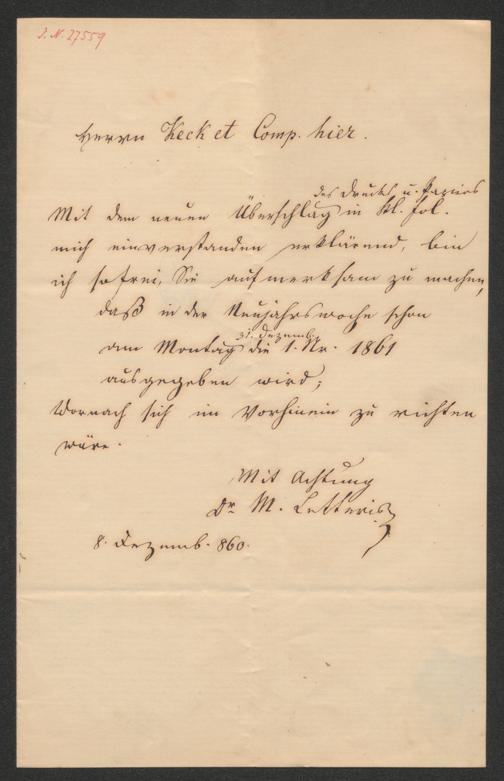 J. N. 27559
Herrn Keck et Comp. hier.
des Drucks u. Papiers
Mit dem neuen Überschlag in kl. Fol.
mich einverstanden erklärend, bin
ich so frei, Sie aufmerksam zu machen,
daß in der Neujahrswoche schon
31. Dezemb.
am Montag die 1. Nr. 1861
ausgegeben wird;
wornach sich im Vorhinein zu richten
wäre.
Mit Achtung
Dr. M. Letteris
8. Dezemb. 860.